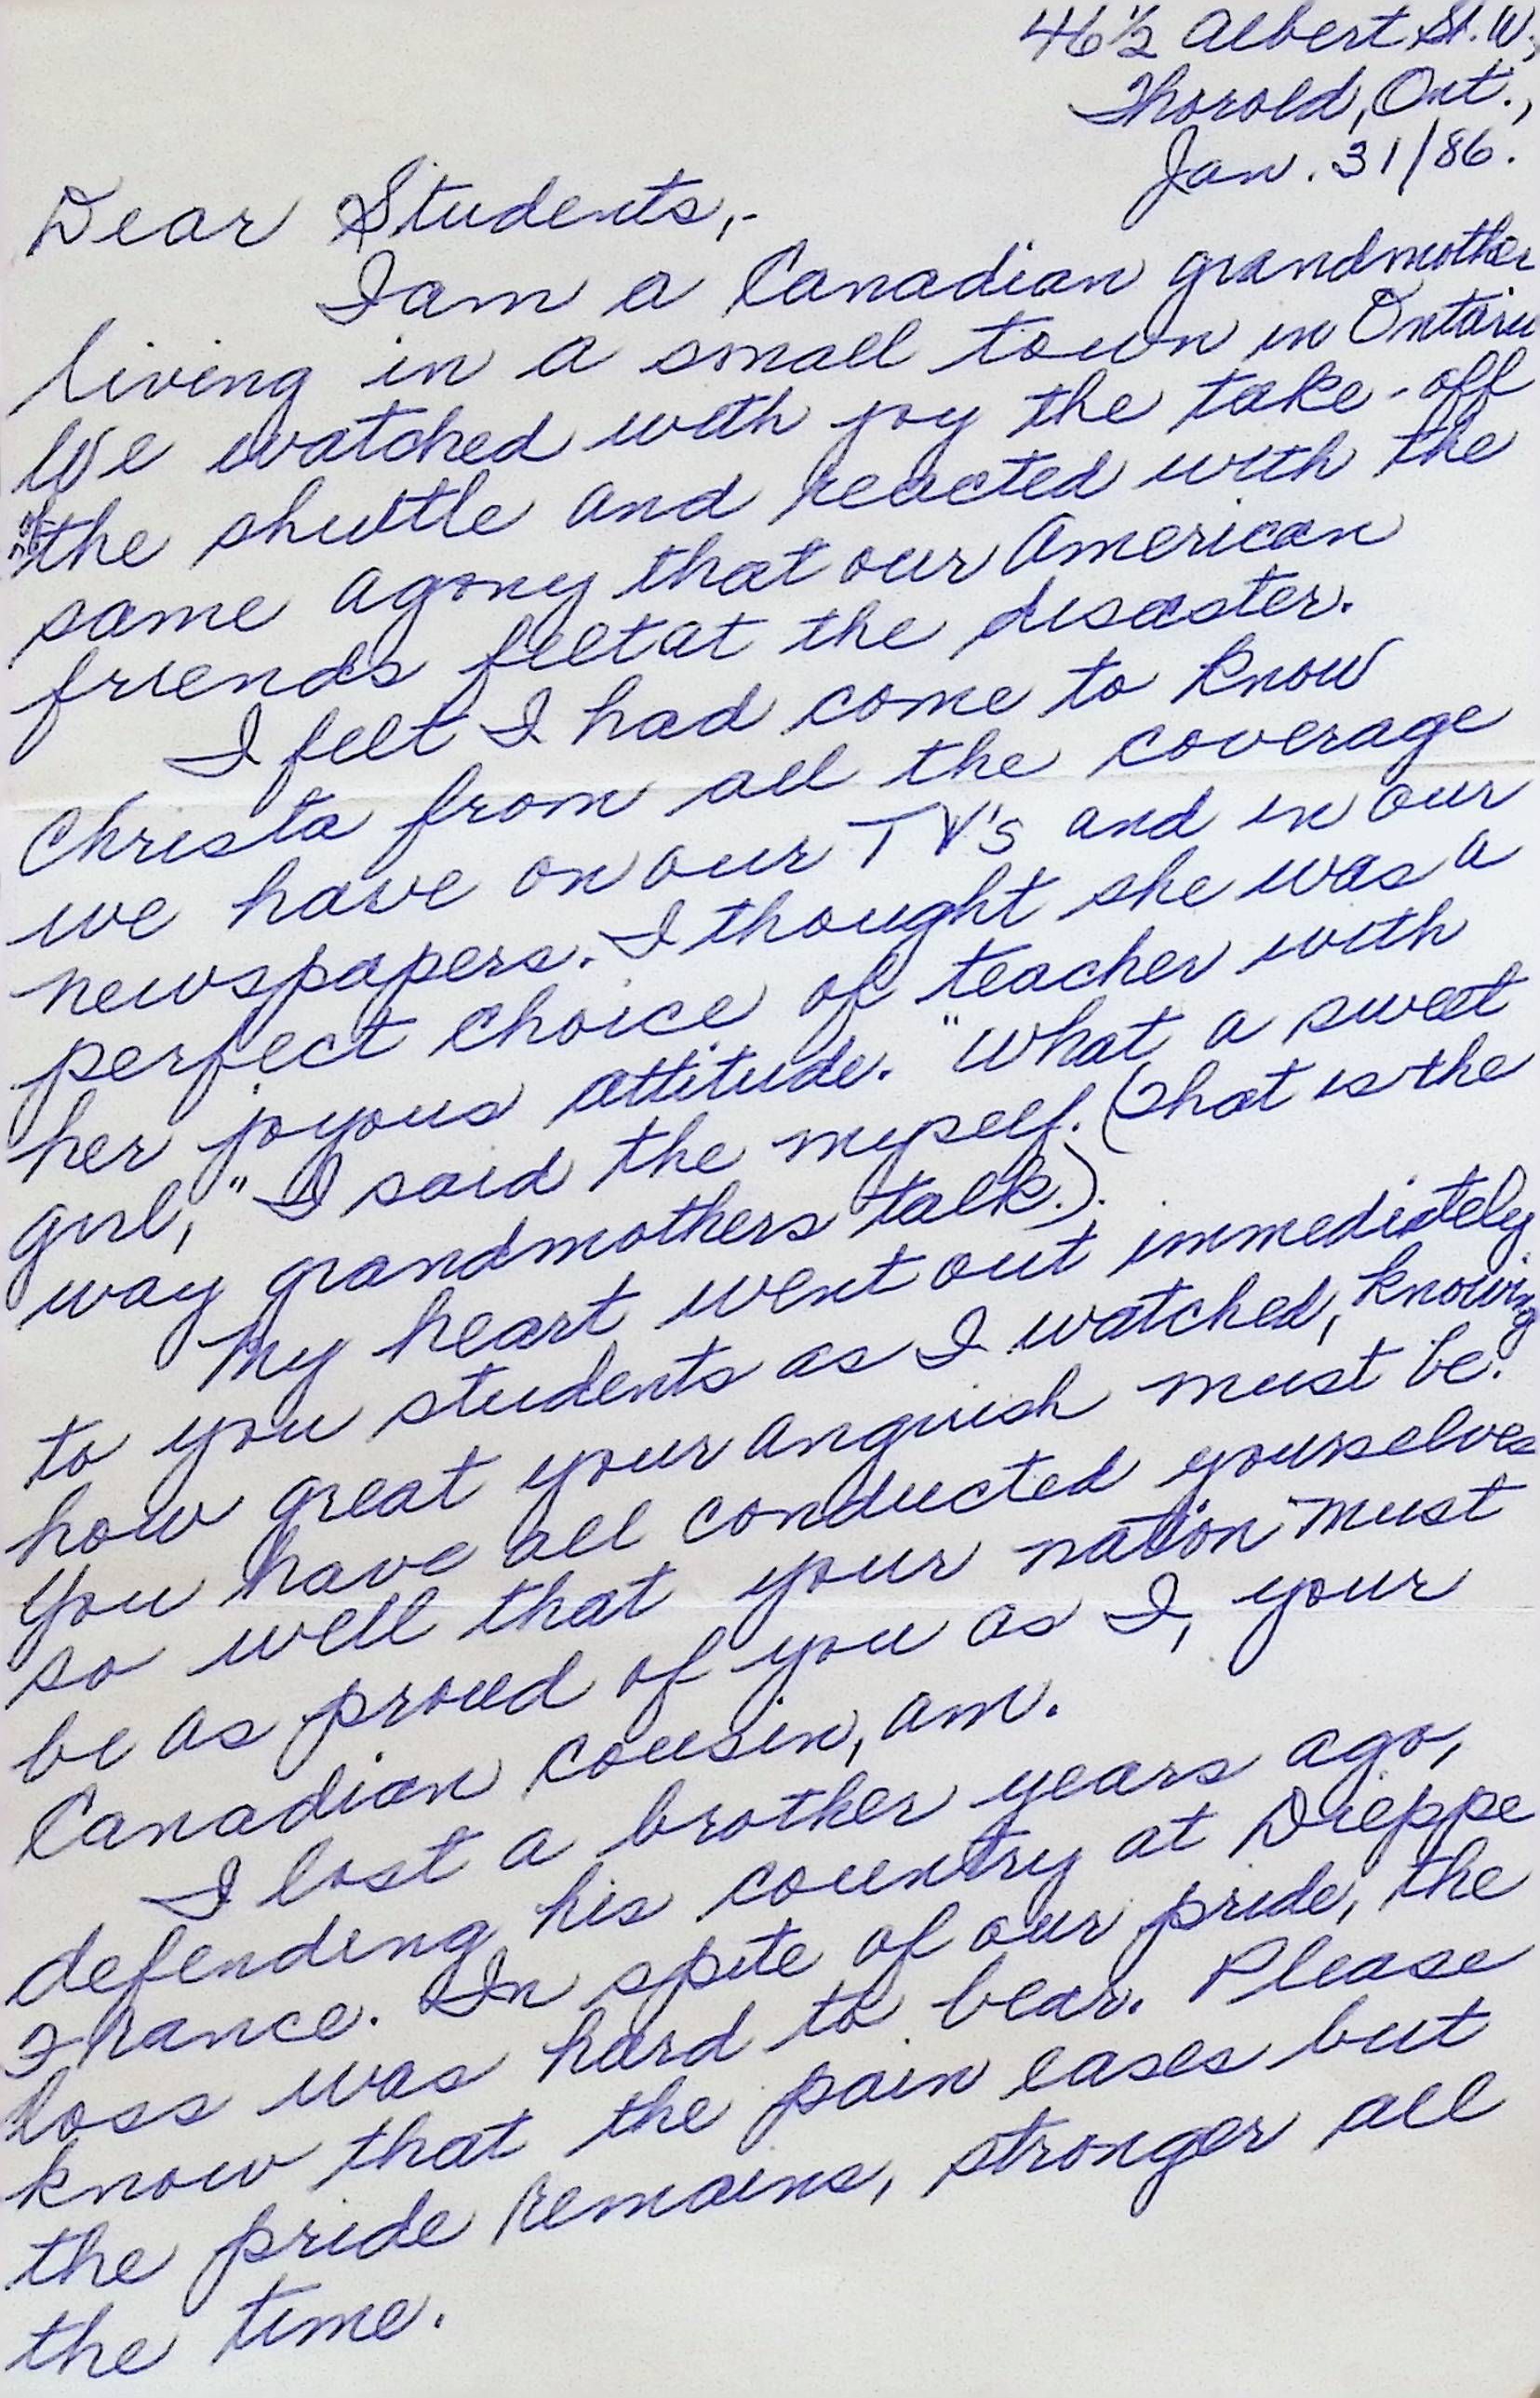 46½ Albert St. W.,
Thorold, Ont.,
Jan. 31/86.
Dear Students,-
I am a Canadian grandmother
living in a small town in Ontario
We watched with joy the take-off
of the shuttle and reacted with the
same agony that our American
friends felt at the disaster.
I felt I had come to know
Christa from all the coverage
we have on our TV's and in our
newspapers. I thought she was a
perfect choice of teacher with
her joyous attitude. "What a sweet
girl," I said the myself. (That is the
way grandmothers talk.).
My heart went out immediately
to you students as I watched, knowing
how great your anguish must be.
You have all conducted yourselves
so well that your nation must
be as proud of you as I, your
Canadian cousin, am.
I lost a brother years ago,
defending his country at Dieppe
France. In spite of our pride, the
loss was hard to bear. Please
know that the pain eases but
the pride remains, stronger all
the time.